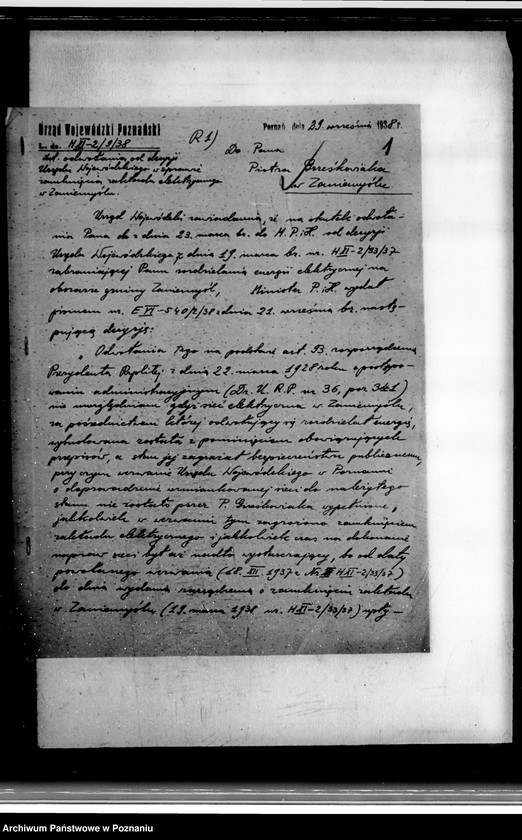 Urząd Wojewódzki Poznański
L. dz. H XI-2/9/38
Poznań, dnia 29 września 1938 r.
(R 1)
1
dot. odwołania od decyzji
Urzędu Wojewódzkiego w sprawie
zamknięcia zakładu elektrycznego
w Zaniemyślu.
Do Pana
Piotra
w Zaniemyślu
Urząd Wojewódzki zawiadamia, iż na skutek odwoła-
nia Pana z dnia 23. marca br. do M.P.iH. od decyzji
Urzędu Wojewódzkiego z dnia 19. marca br. nr. H XI-2/33/37
zabraniającej Panu rozdzielania energii elektrycznej na
obszarze gminy Zaniemyśl, Minister P.iH. wydał
pismem nr. E VI-540/2/38 z dnia 21. września br. nastę-
pującą decyzję:
„Odwołania tego na podstawie art. 93. rozporządzenia
Prezydenta Rzplitej z dnia 22. marca 1928 roku o postępo-
waniu administracyjnym (Dz. U. R. P. nr 36, poz 341)
nie uwzględniam gdyż sieć elektryczna w Zaniemyślu,
za pośrednictwem której odwołujący się rozdzielał energię,
wybudowana została z pominięciem obowiązujących
przepisów, a stan jej zagrażał bezpieczeństwu publicznemu,
przyczym wezwanie Urzędu Wojewódzkiego w Poznaniu
o doprowadzenie wzmiankowanej sieci do należytego
stanu nie zostało przez P. wypełnione,
jakkolwiek w wezwaniu tym zagrożono zamknięciem
zakładu elektrycznego i jakkolwiek czas na dokonanie
napraw sieci był aż nadto wystarczający, bo od daty
powołanego wezwania (18. XII. 1937 r. Nr H XI-2/33/37)
do dnia wydania zarządzenia o zamknięciu zakładu
w Zaniemyślu (19. marca 1938 nr. H XI-2/33/37) upły-
Archiwum Państwowe w Poznaniu